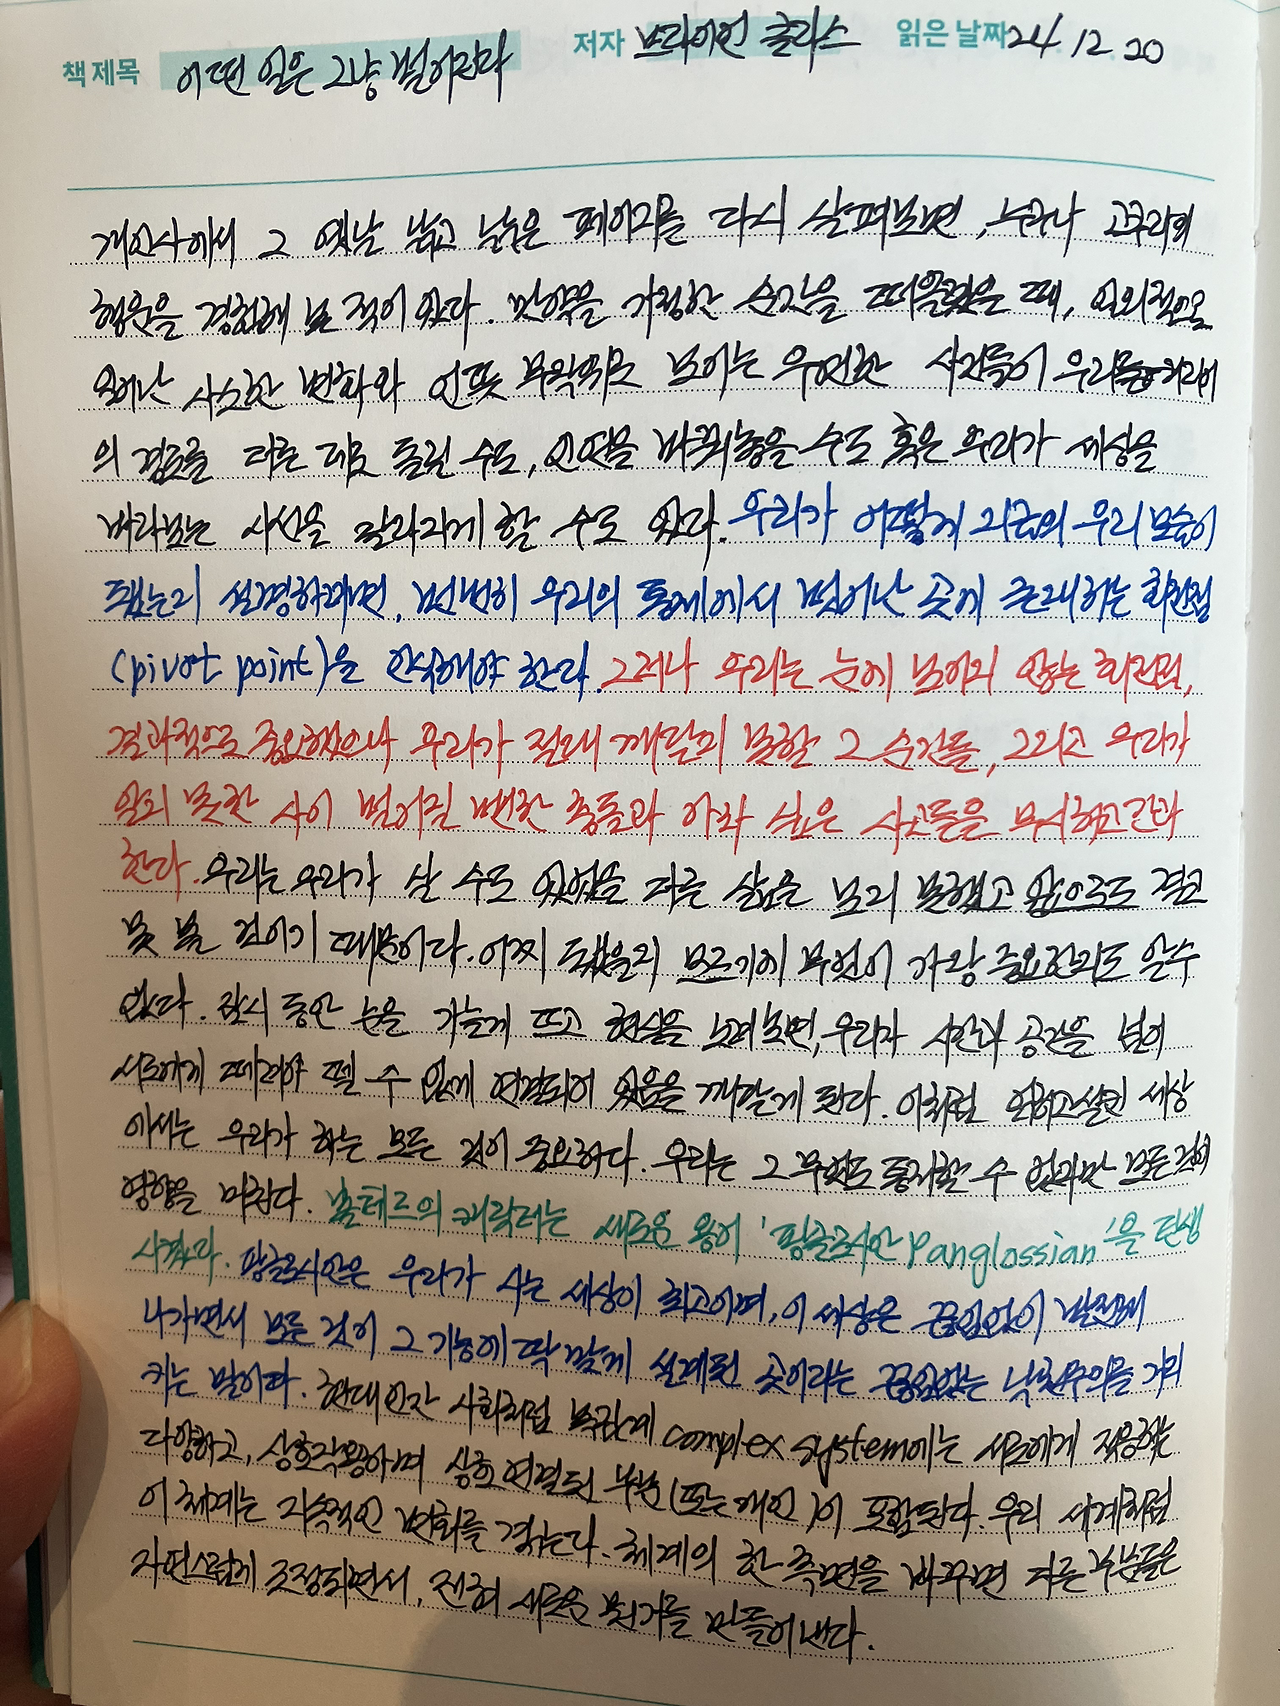 책 제목 어떤 일은 그냥 벌어진다 저자 브라이언 클라스 읽은 날짜 24. 12. 20
개인사에서 그 옛날 낡고 낡은 페이지를 다시 살펴보면, 누구나 고쿠라의
행운을 경험해 본 적이 있다. 만약을 가정한 순간을 떠올렸을 때, 임의적으로
일어난 사소한 변화와 언뜻 무작위로 보이는 우연한 사건들이 우리들 커리어
의 경로를 다른 데로 돌릴 수도, 인연을 바꿔놓을 수도 혹은 우리가 세상을
바라보는 시선을 달라지게 할 수도 있다. 우리가 어떻게 지금의 우리 모습이
됐는지 설명하려면, 번번히 우리의 통제에서 벗어난 곳에 존재하는 회전점
(pivot point)을 인식해야 한다. 그러나 우리는 눈에 보이지 않는 회전점,
결과적으로 중요했으나 우리가 절대 깨닫지 못할 그 순간들, 그리고 우리가
알지 못한 사이 벌어질 뻔한 충돌과 아차 싶은 사고들을 무시하고 간과
한다. 우리는 우리가 살 수도 있었을 다른 삶은 보지 못했고 앞으로도 결코
못 볼 것이기 때문이다. 어찌 됐을지 모르기에 무엇이 가장 중요한지도 알 수
없다. 잠시 동안 눈을 가늘게 뜨고 현실을 노려보면, 우리가 시간과 공간을 넘어
서로에게 떼려야 뗄 수 없게 연결되어 있음을 깨닫게 된다. 이처럼 얽히고설킨 세상
에서는 우리가 하는 모든 것이 중요하다. 우리는 그 무엇도 통제할 수 없지만 모든 것에
영향을 미친다. 볼테르의 캐릭터는 새로운 용어 '팡글로시안 Panglossian'을 탄생
시켰다. 팡글로시안은 우리가 사는 세상이 최고이며, 이 세상은 끊임없이 발전해
나가면서 모든 것이 그 기능에 딱 맞게 설계된 곳이라는 끊임없는 낙천주의를 가리
키는 말이다. 현대 인간 사회처럼 복잡계 complex system에는 서로에게 적응하는
다양하고, 상호작용하며 상호 연결된 부분(또는 개인)이 포함된다. 우리 세계처럼
이 체계는 지속적인 변화를 겪는다. 체계의 한 측면을 바꾸면 다른 부분들은
자연스럽게 조정되면서, 전혀 새로운 뭔가를 만들어 낸다.